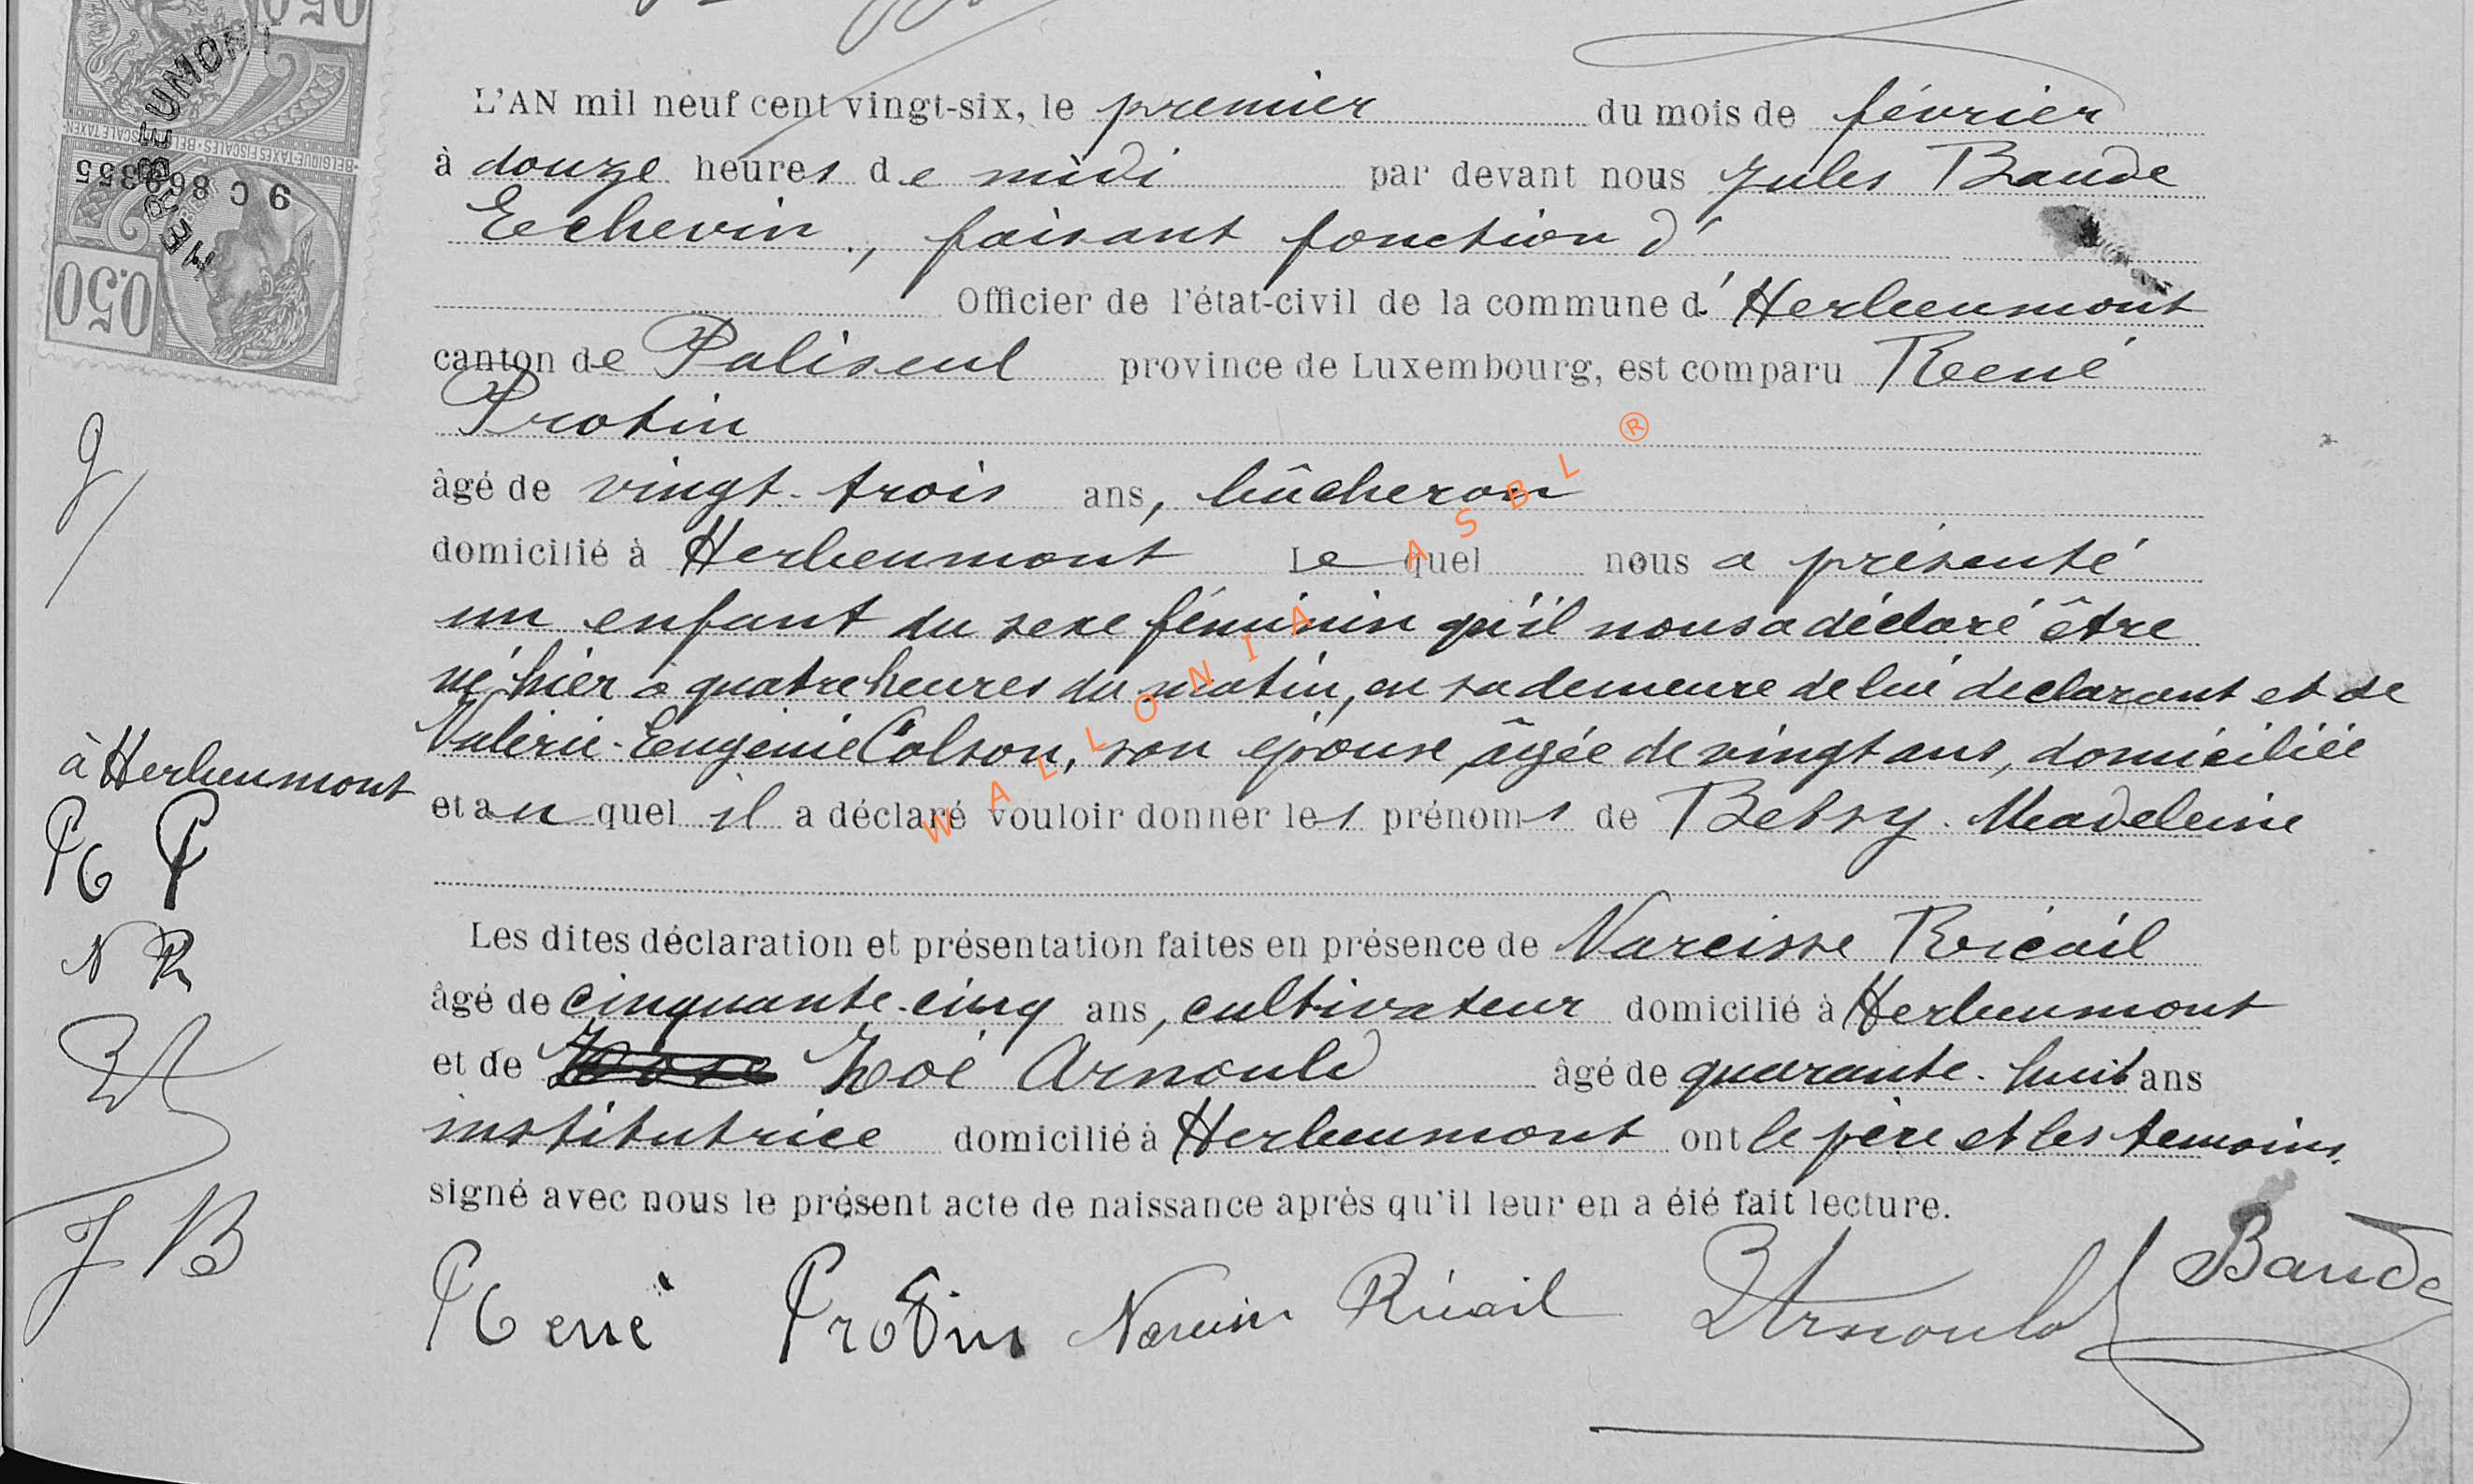 0.50
HERBEUMONT
BELGIQUE-TAXES FISCALES - BELGIE-FISCALE TAXEN
9 C 869355
0.50
L'AN mil neuf cent vingt-six, le premier du mois de février
à douze heures de midi par devant nous Jules Baude
Echevin, faisant fonction d'
Officier de l'état-civil de la commune d'Herbeumont
canton de Paliseul province de Luxembourg, est comparu René
Protin
âgé de vingt-trois ans, bûcheron
domicilié à Herbeumont Lequel nous a présenté
un enfant du sexe féminin qu'il nous a déclaré être
né hier à quatre heures du matin, en sa demeure de lui déclarant et de
Valérie-Eugénie Colson, son épouse, âgée de vingt ans, domiciliée
à Herbeumont
et au quel il a déclaré vouloir donner les prénoms de Betsy-Madeleine
R P
N R
ZA
J B
Les dites déclaration et présentation faites en présence de Narcisse Ricail
âgé de cinquante-cinq ans, cultivateur domicilié à Herbeumont
et de Zoé Arnould âgé de quarante-huit ans
institutrice domicilié à Herbeumont ont le père et les témoins
signé avec nous le présent acte de naissance après qu'il leur en a été fait lecture.
René Protin Narcisse Ricail ZArnould J Baude
WALLONIA ASBL ®